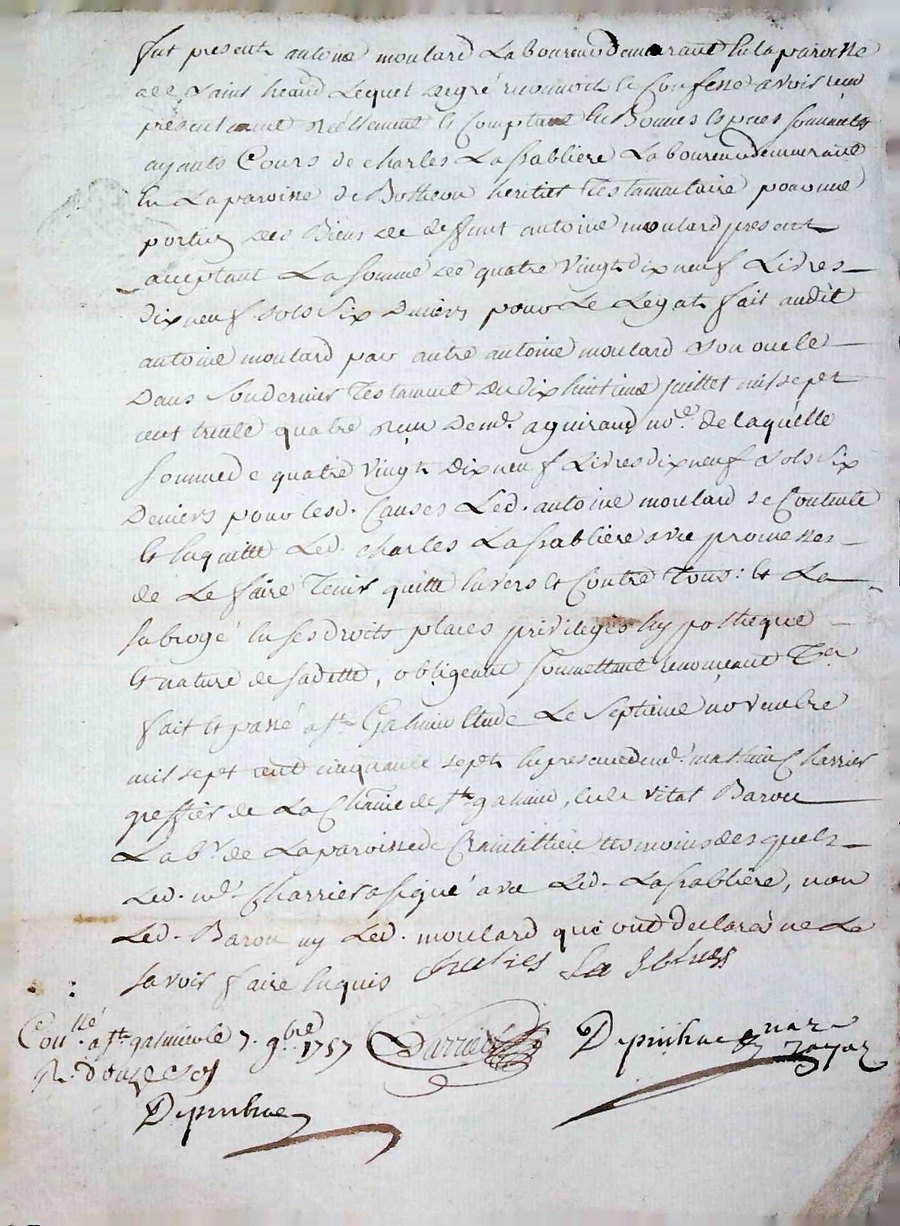 fut present antoine moulard Laboureur demeurant en la paroisse
de Saint heand Lequel de gré reconnoit et Confesse avoir receu
presentement réellement et Comptant en Bonnes Especes sonnantes
ayants Cours de charles Lasablière Laboureur demeurant
En La paroisse de Botheon heritier Testamentaire pour une
portion des Biens de deffunt antoine moulard present
acceptant La somme de quatre vingt dix neuf Livres
dix neuf sols six deniers pour Le Legat fait audit
antoine moulard par autre antoine moulard son oncle
Dans son dernier Testament du dix huitieme juillet mil sept
cent trente quatre receu De me. aguiraud nore. de laquelle
somme de quatre vingt dix neuf Livres dix neuf sols six
Deniers pour lesd. Causes Led. antoine moulard se Contente
Et En quitte Led. charles Lasablière avec promesses
de Le faire Tenir quitte Envers Et Contre Tous: Et La
subrogé En ses droits places privileges hypotheque
Et nature de sa dette, obligeant soumettant renonceant &er
fait Et passé a st. Galmier Etude Le septieme novembre
mil sept cent cinquante sept En presence de me. mathieu Charrier
greffier de La Chatnie de st. galmier, Et de vital Barou
Labr. de La paroisse de Craintillieu temoins desquels
Led. me. Charrier a signé avec Led. Lasablière, non
Led. Barou ny Led. moulard qui ont declaré ne Le
savoir faire Enquis Charles La
Conllé a st. galmier le 7. 9bre 1757 Charrier
R. douze sols